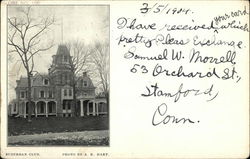 3/5/1904.
I have received your card which
pretty. Please Exchange.
Samuel W. Morrell
53 Orchard St,
Stamford,
Conn.
SUBURBAN CLUB.
PHOTO BY A. R. HART.